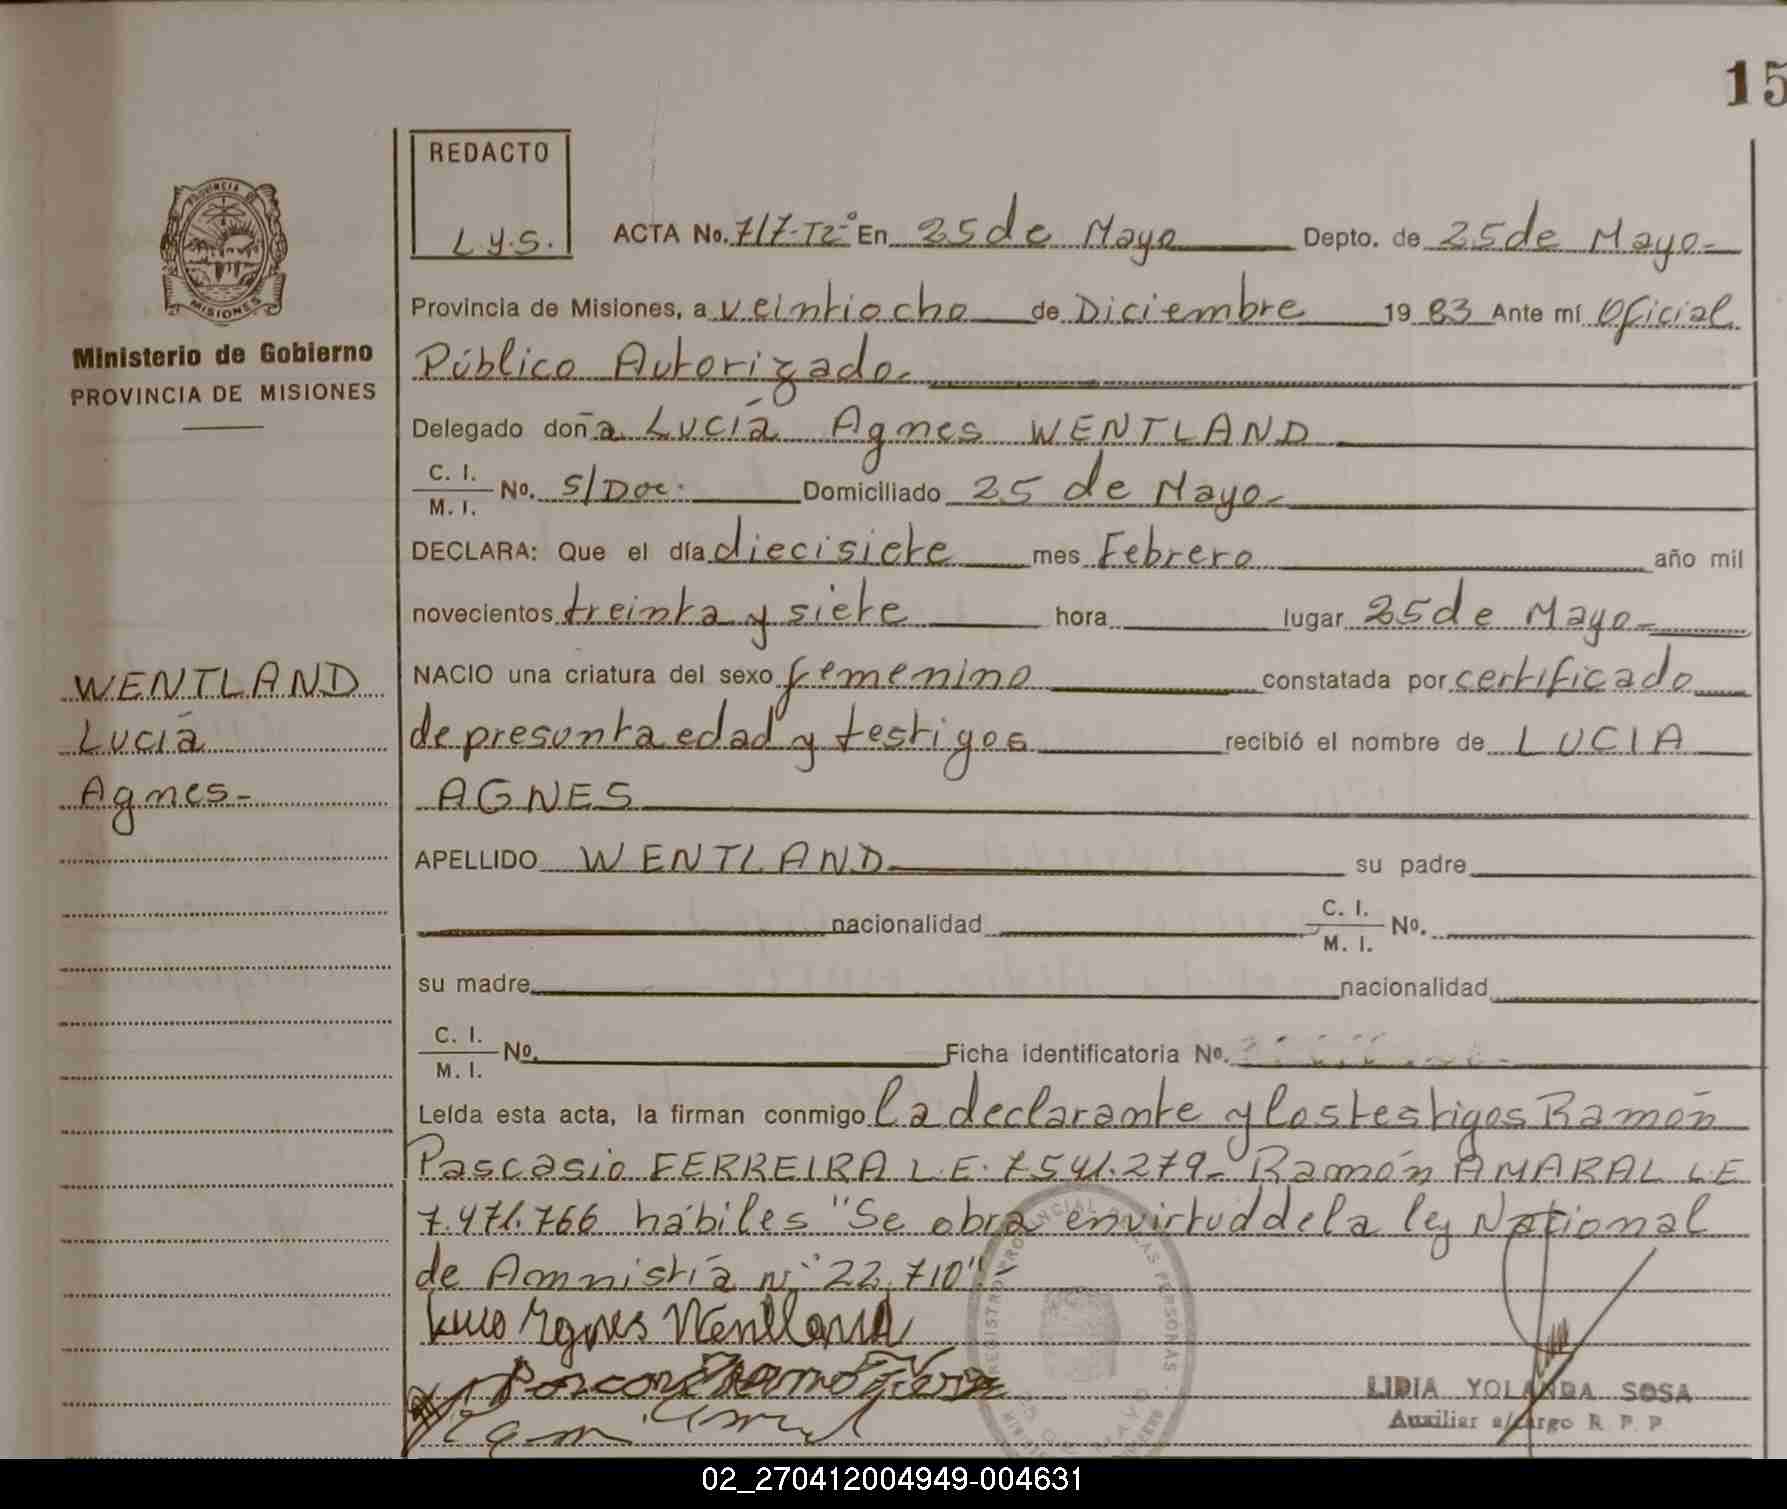 15
REDACTO
L.y.S.
ACTA No. 717-T2° En 25 de Mayo Depto. de 25 de Mayo-
Provincia de Misiones, a veintiocho de Diciembre 19 83 Ante mí Oficial
Público Autorizado-
Delegado doña Lucía Agnes WENTLAND
C. I.
M. I. No. S/Doc. Domiciliado 25 de Mayo-
DECLARA: Que el día diecisiete mes Febrero año mil
novecientos treinta y siete hora lugar 25 de Mayo-
NACIO una criatura del sexo femenino constatada por certificado
de presunta edad y testigos recibió el nombre de LUCIA
AGNES
APELLIDO WENTLAND su padre
nacionalidad C. I.
M. I. No.
su madre nacionalidad
C. I.
M. I. No. Ficha identificatoria No.
Leída esta acta, la firman conmigo la declarante y los testigos Ramón
Pascasio FERREIRA L.E. 7.541.279- Ramón AMARAL L.E
7.471.766 hábiles "Se obra en virtud de la ley National
de Amnistía N° 22.710"-
Agnes Wentland
LIDIA YOLANDA SOSA
Auxiliar a/cargo R. P. P.
PROVINCIA DE
MISIONES
Ministerio de Gobierno
PROVINCIA DE MISIONES
WENTLAND
Lucía
Agnes-
REGISTRO PROVINCIAL DE LAS PERSONAS
25 DE MAYO
02_270412004949-004631